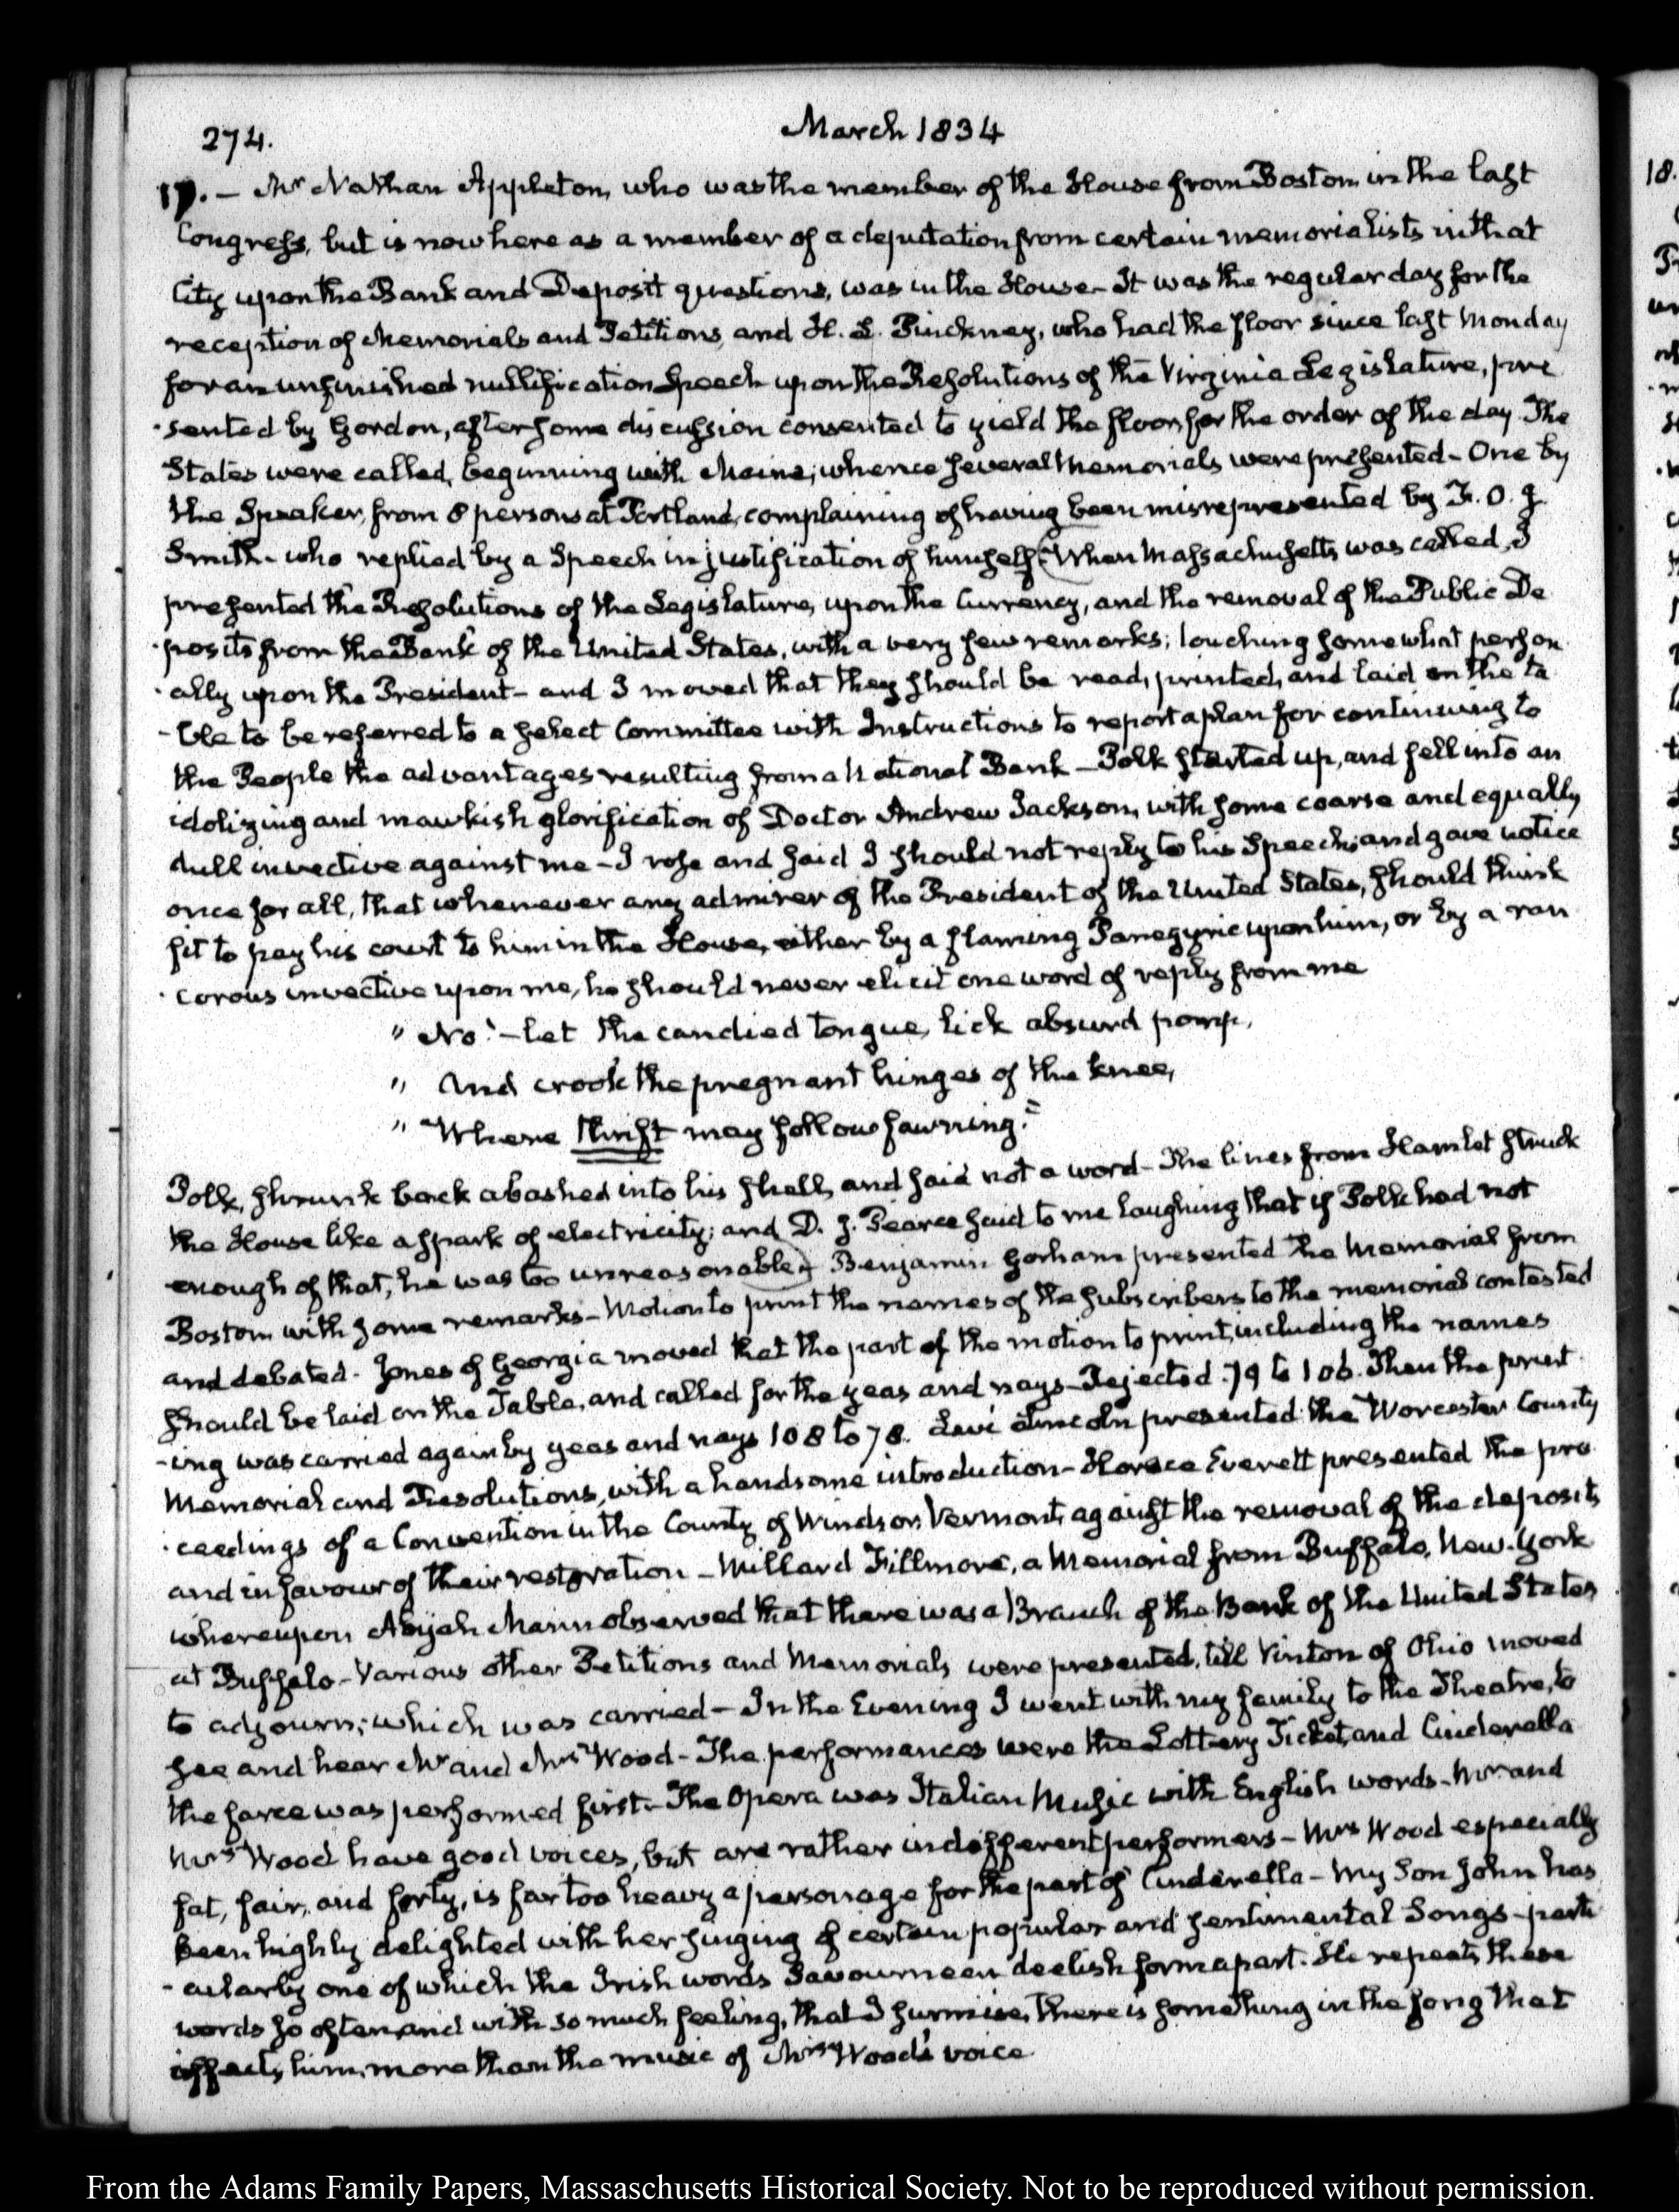 274.
March 1834
17. – Mr Nathan Appleton, who was the member of the House from Boston in the last
Congress, but is now here as a member of a deputation from certain memorialists in that
City upon the Bank and Deposit questions, was in the House – It was the regular day for the
reception of Memorials and Petitions, and H. L. Pinckney, who had the floor since last Monday
for an unfinished nullification Speech upon the Resolutions of the Virginia Legislature, pre
-sented by Gordon, after some discussion consented to yield the floor for the order of the day. The
States were called, beginning with Maine, whence several Memorials were presented – One by
the Speaker, from 8 persons at Portland, complaining of having been misrepresented by F. O. J.
Smith – who replied by a Speech in justification of himself. (When Massachusetts was called, I
presented the Resolutions of the Legislature, upon the Currency, and the removal of the Public De
-posits from the Bank of the United States, with a very few remarks; touching somewhat person
-ally upon the President – and I moved that they should be read, printed, and laid on the ta
-ble to be referred to a select Committee with Instructions to report a plan for continuing to
the People the advantages resulting from a National Bank – Polk started up, and fell into an
idolizing and mawkish glorification of Doctor Andrew Jackson, with some coarse and equally
dull invective against me – I rose and said I should not reply to his Speech; and gave notice
once for all, that whenever any admirer of the President of the United States, should think
fit to pay his court to him in the House, either by a flaming Panegyric upon him, or by a ran
-corous invective upon me, he should never elicit one word of reply from me
" No! – let the candied tongue, lick absurd pomp,
" And crook the pregnant hinges of the knee,
" Where thrift may follow fawning."
Polk, shrunk back abashed into his shell, and said not a word – The lines from Hamlet struck
the House like a spark of electricity; and D. J. Pearce said to me laughing that if Polk had not
enough of that, he was too unreasonable) Benjamin Gorham presented the Memorial from
Boston with some remarks – Motion to print the names of the subscribers to the memorial contested
and debated. Jones of Georgia moved that the part of the motion to print, including the names
should be laid on the Table, and called for the yeas and nays – Rejected. 79 to 106. Then the print
-ing was carried again by yeas and nays 108 to 78. Levi Lincoln presented the Worcester County
Memorial and Resolutions, with a handsome introduction – Horace Everett presented the pro
-ceedings of a Convention in the County of Windsor, Vermont, against the removal of the deposits
and in favour of their restoration – Millard Fillmore, a Memorial from Buffalo, New-York
whereupon Abijah Mann observed that there was a Branch of the Bank of the United States
at Buffalo – Various other Petitions and Memorials were presented, till Vinton of Ohio moved
to adjourn; which was carried – In the Evening I went with my family to the Theatre, to
see and hear Mr and Mrs Wood – The performances were the Lottery Ticket, and Cinderella
the farce was performed first – The Opera was Italian Music with English words – Mr and
Mrs Wood have good voices, but are rather indifferent performers – Mrs Wood especially
fat, fair, and forty, is far too heavy a personage for the part of Cinderella – My Son John has
been highly delighted with her singing of certain popular and sentimental Songs – parti
-cularly one of which the Irish words Savourneen deelish form a part. He repeats these
words so often, and with so much feeling, that I surmise, there is something in the song that
affects him, more than the music of Mrs Wood's voice
18.
From the Adams Family Papers, Massaschusetts Historical Society. Not to be reproduced without permission.